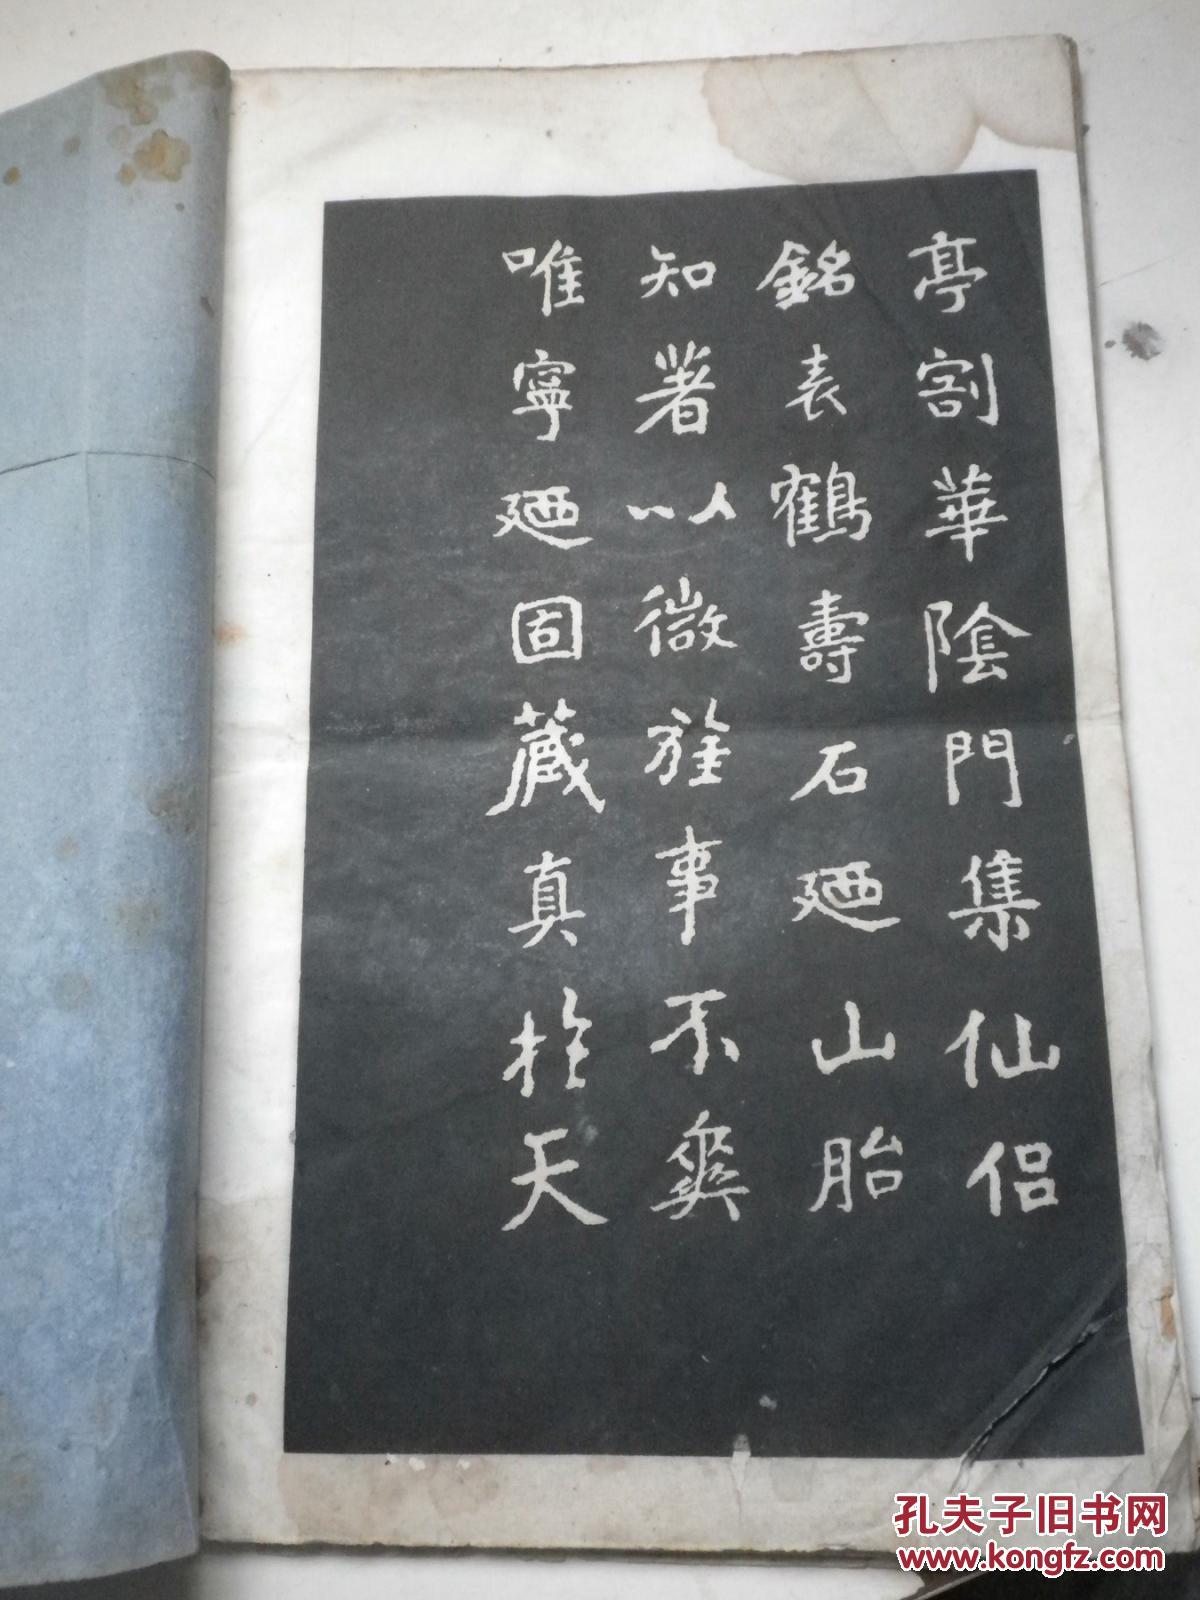 亭割華陰門集仙侶
銘表鶴壽石廼山胎
知著以微旌事不爽
唯寧廼固藏真於天
孔夫子旧书网
www.kongfz.com